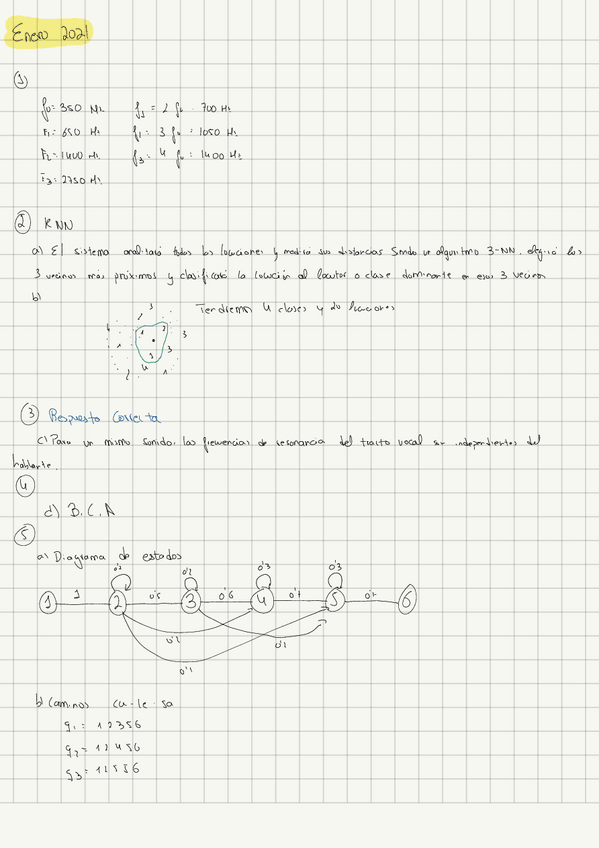 Enero 2021
①
f0 = 350 Hz f1 = 2 f0 = 700 Hz
F1 = 650 Hz f1 = 3 f0 = 1050 Hz
F2 = 1400 Hz f3 = 4 f0 = 1400 Hz
F3 = 2750 Hz
② KNN
a) El sistema analizará todas las locuciones y medirá sus distancias. Siendo un algoritmo 3-NN, elegirá los
3 vecinos más próximos y clasificará la locución al locutor o clase dominante en esos 3 vecinos
b)
Tendremos 4 clases y 20 locuciones
③ Respuesta Correcta
c) Para un mismo sonido, las frecuencias de resonancia del tracto vocal son independientes del
hablante.
④
d) B, C, A
⑤
a) Diagrama de estados
0'2 0'2 0'3 0'3
1 1 2 0'5 3 0'6 4 0'7 5 0'7 6
0'2 0'1
0'1
b) Caminos cu-le-sa
q1 = 12356
q2 = 12456
q3 = 12556